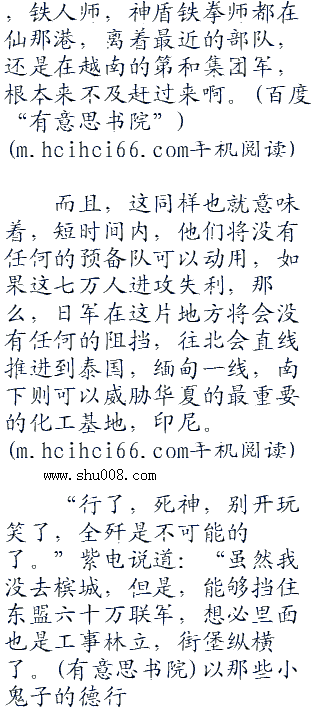 ，铁人师，神盾铁拳师都在
仙那港，离着最近的部队，
还是在越南的第和集团军，
根本来不及赶过来啊。(百度
“有意思书院”)
(m.hcihci66.com手机阅读)
而且，这同样也就意味
着，短时间内，他们将没有
任何的预备队可以动用，如
果这七万人进攻失利，那
么，日军在这片地方将会没
有任何的阻挡，往北会直线
推进到泰国，缅甸一线，南
下则可以威胁华夏的最重要
的化工基地，印尼。
(m.hcihci66.com手机阅读)
www.shu008.com
“行了，死神，别开玩
笑了，全歼是不可能的
了。”紫电说道：“虽然我
没去槟城，但是，能够挡住
东盟六十万联军，想必里面
也是工事林立，街堡纵横
了。(有意思书院)以那些小
鬼子的德行